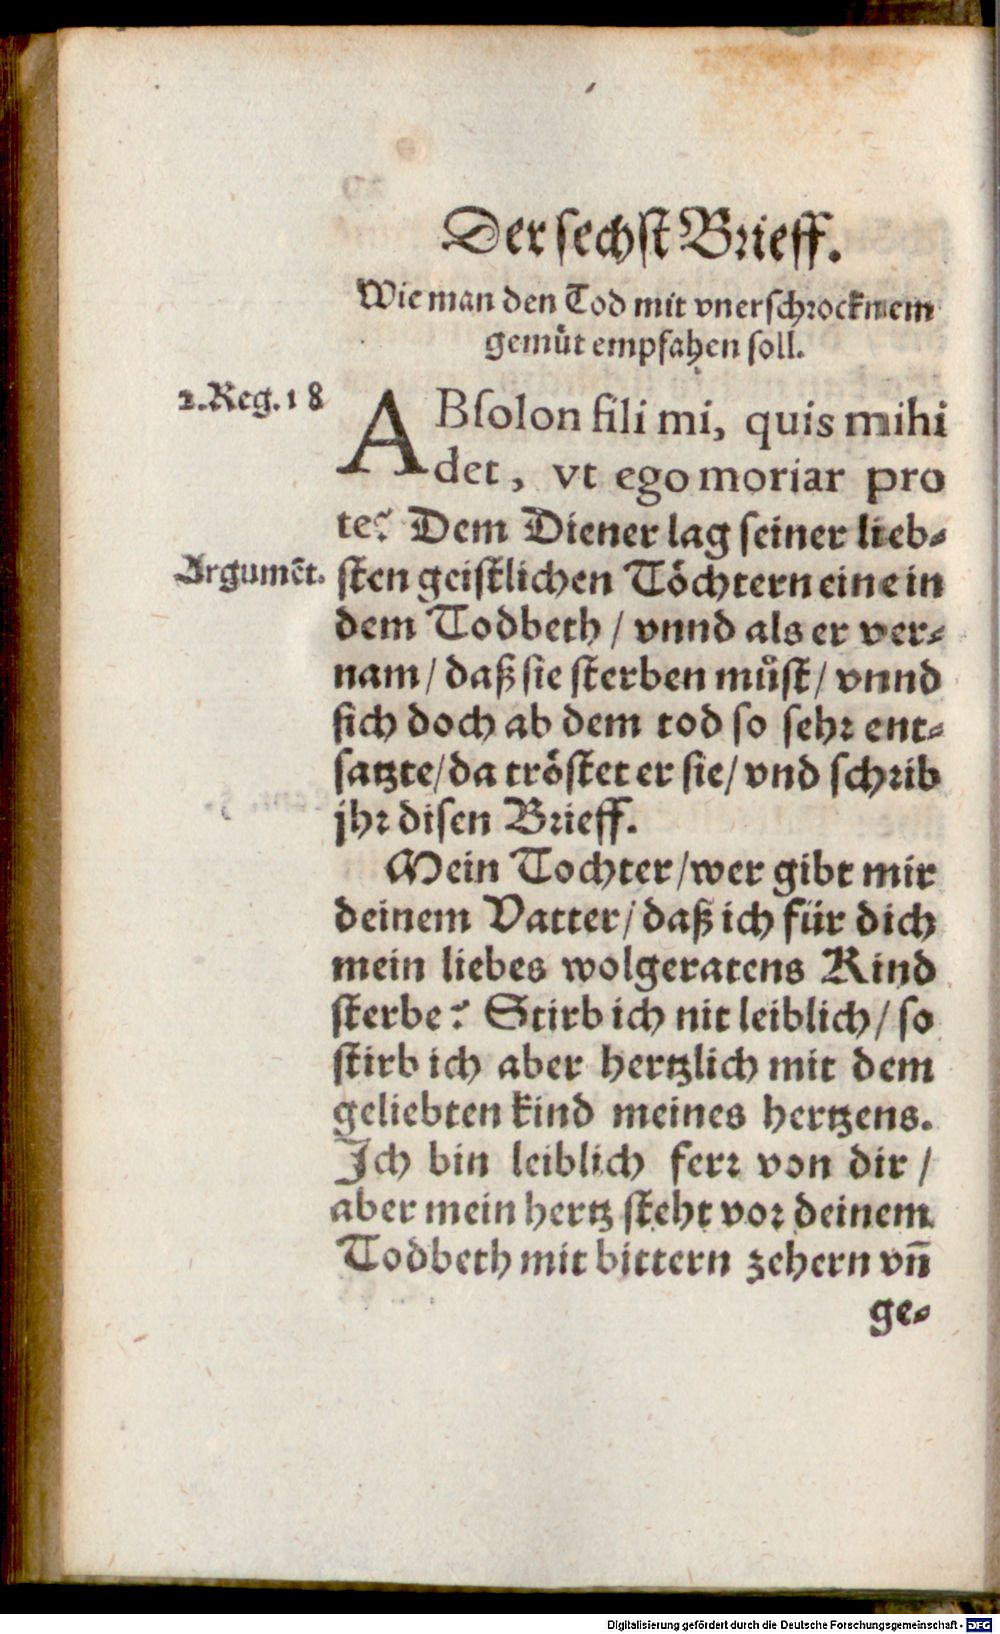 Der sechst Brieff.
Wie man den Tod mit vnerschrocknem
gemüt empfahen soll.
2.Reg.18
ABsolon fili mi, quis mihi
det, vt ego moriar pro
te? Dem Diener lag seiner lieb-
Argumēt.
sten geistlichen Töchtern eine in
dem Todbeth / vnnd als er ver-
nam / daß sie sterben můst / vnnd
sich doch ab dem tod so sehr ent-
satzte / da tröstet er sie / vnd schrib
jhr disen Brieff.
Mein Tochter / wer gibt mir
deinem Vatter / daß ich für dich
mein liebes wolgeratens Kind
sterbe? Stirb ich nit leiblich / so
stirb ich aber hertzlich mit dem
geliebten kind meines hertzens.
Ich bin leiblich ferr von dir /
aber mein hertz steht vor deinem
Todbeth mit bittern zehern vñ
ge-
Digitalisierung gefördert durch die Deutsche Forschungsgemeinschaft - DFG